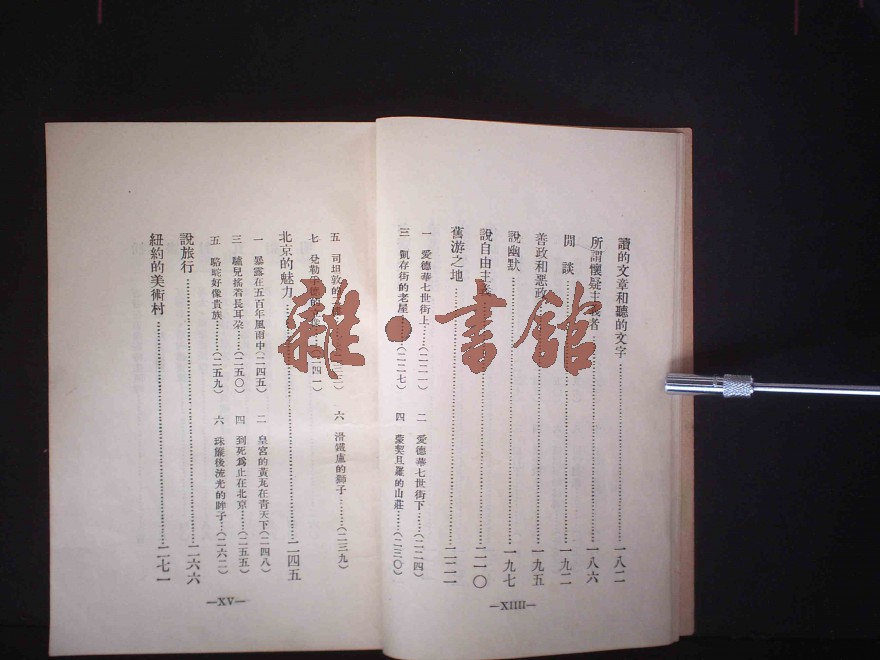 讀的文章和聽的文字……一八二
所謂懷疑主義者……一八六
閒 談……一九二
善政和惡政……一九五
說幽默……一九七
說自由主義……二一〇
舊游之地……二二一
一 愛德華七世街上……(二二一) 二 愛德華七世街下……(二二四)
三 凱存街的老屋……(二二七) 四 蒙契且羅的山莊……(二三〇)
—XIIII—
五 司坦敦的 六 滑鐵盧的獅子……(二三九)
七
北京的魅力……二四五
一 暴露在五百年風雨中(二四五) 二 皇宮的黃瓦在青天下(二四八)
三 驢兒搖着長耳朵……(二五〇) 四 到死爲止在北京……(二五五)
五 駱駝好像貴族……(二五九) 六 珠簾後流光的眸子…(二六二)
說旅行……二六六
紐約的美術村……二七一
—XV—
雜·書館